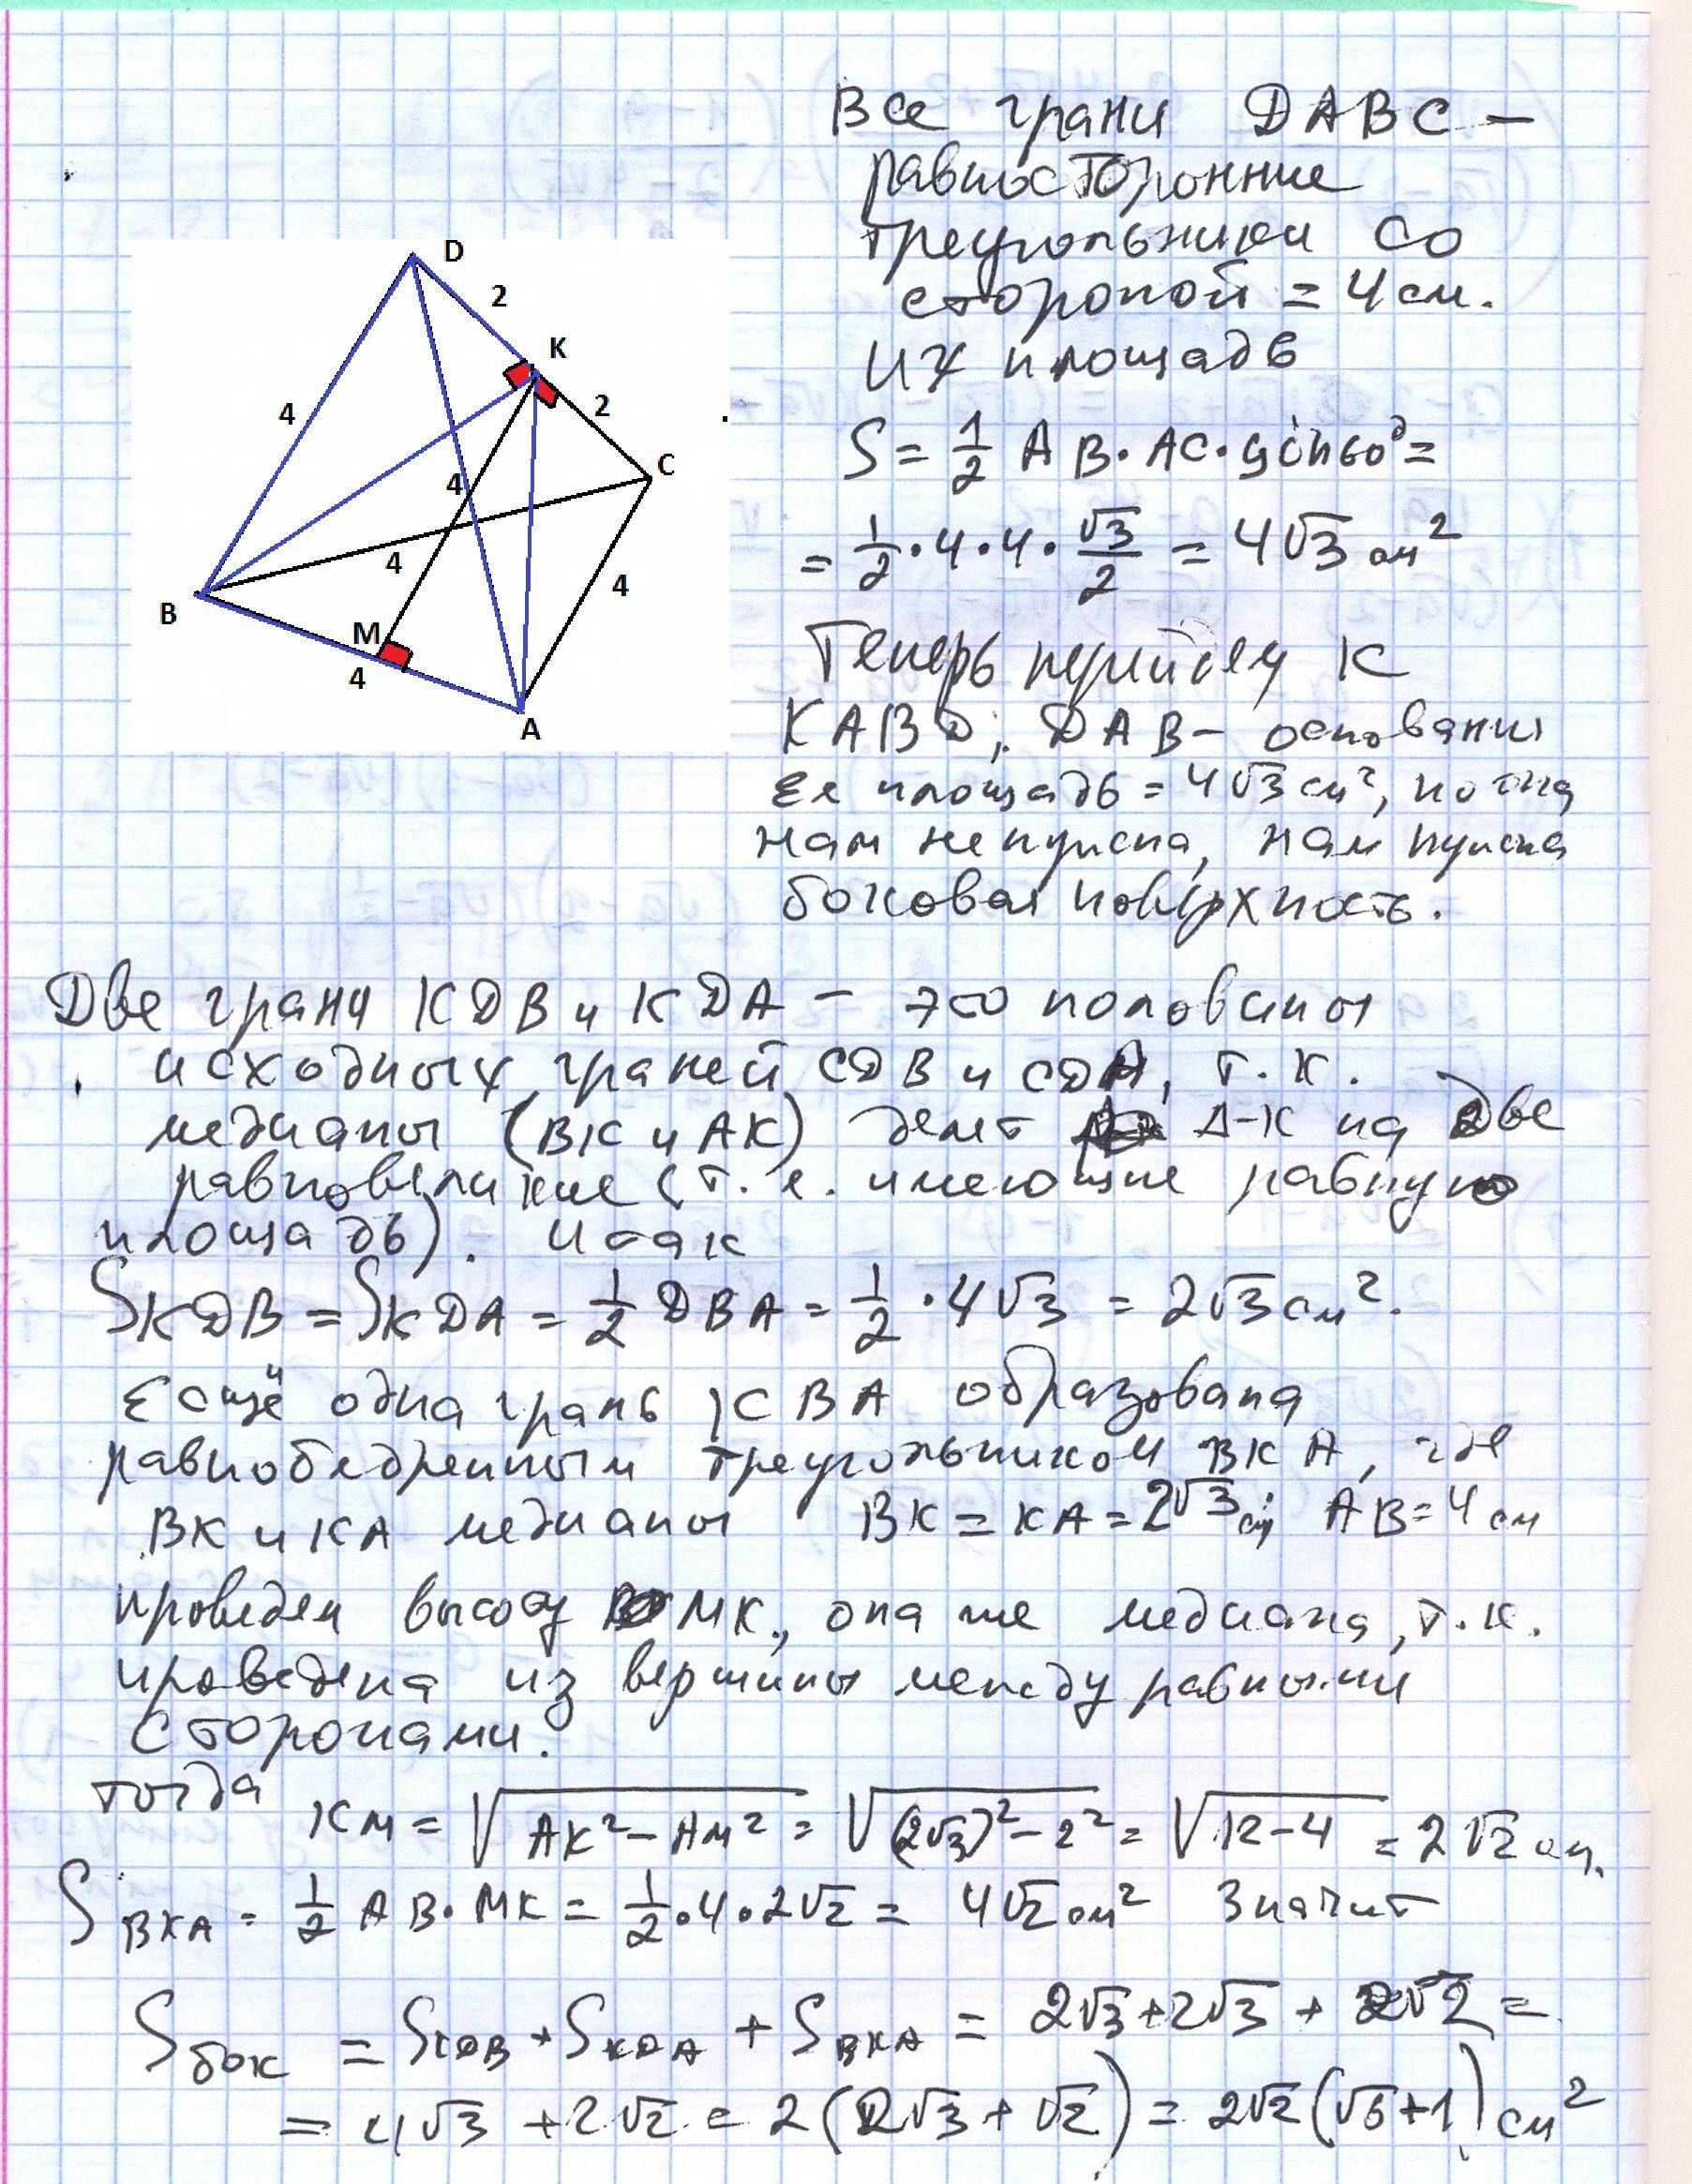 Все грани DABC –
равносторонние
треугольники со
стороной = 4 см.
их площадь
S = 1/2 AB · AC · sin 60° =
= 1/2 · 4 · 4 · √3/2 = 4√3 см²
D
2
K
2
4
C
4
4
4
B
M
4
A
Теперь перейдем к
KABD; DAB – основание
Ее площадь = 4√3 см², но она
нам не нужна, нам нужна
боковая поверхность.
Две грани KDB и KDA – это половины
исходных граней CDB и CDA, т.к.
медианы (BK и AK) делят Δ-к на две
равновеликие (т.е. имеющие равную
площадь). Итак
S KDB = S KDA = 1/2 DBA = 1/2 · 4√3 = 2√3 см².
Ещё одна грань KBA образована
равнобедренным треугольником BKA, где
BK и KA медианы BK = KA = 2√3 см; AB = 4 см
проведем высоту MK, она же медиана, т.к.
проведена из вершины между равными
сторонами.
тогда KM = √(AK² – AM²) = √((2√3)² – 2²) = √(12 – 4) = 2√2 см.
S BKA = 1/2 AB · MK = 1/2 · 4 · 2√2 = 4√2 см² Значит
S бок = S KDB + S KDA + S BKA = 2√3 + 2√3 + 2√2 =
= 4√3 + 2√2 = 2(2√3 + √2) = 2√2(√6 + 1) см²